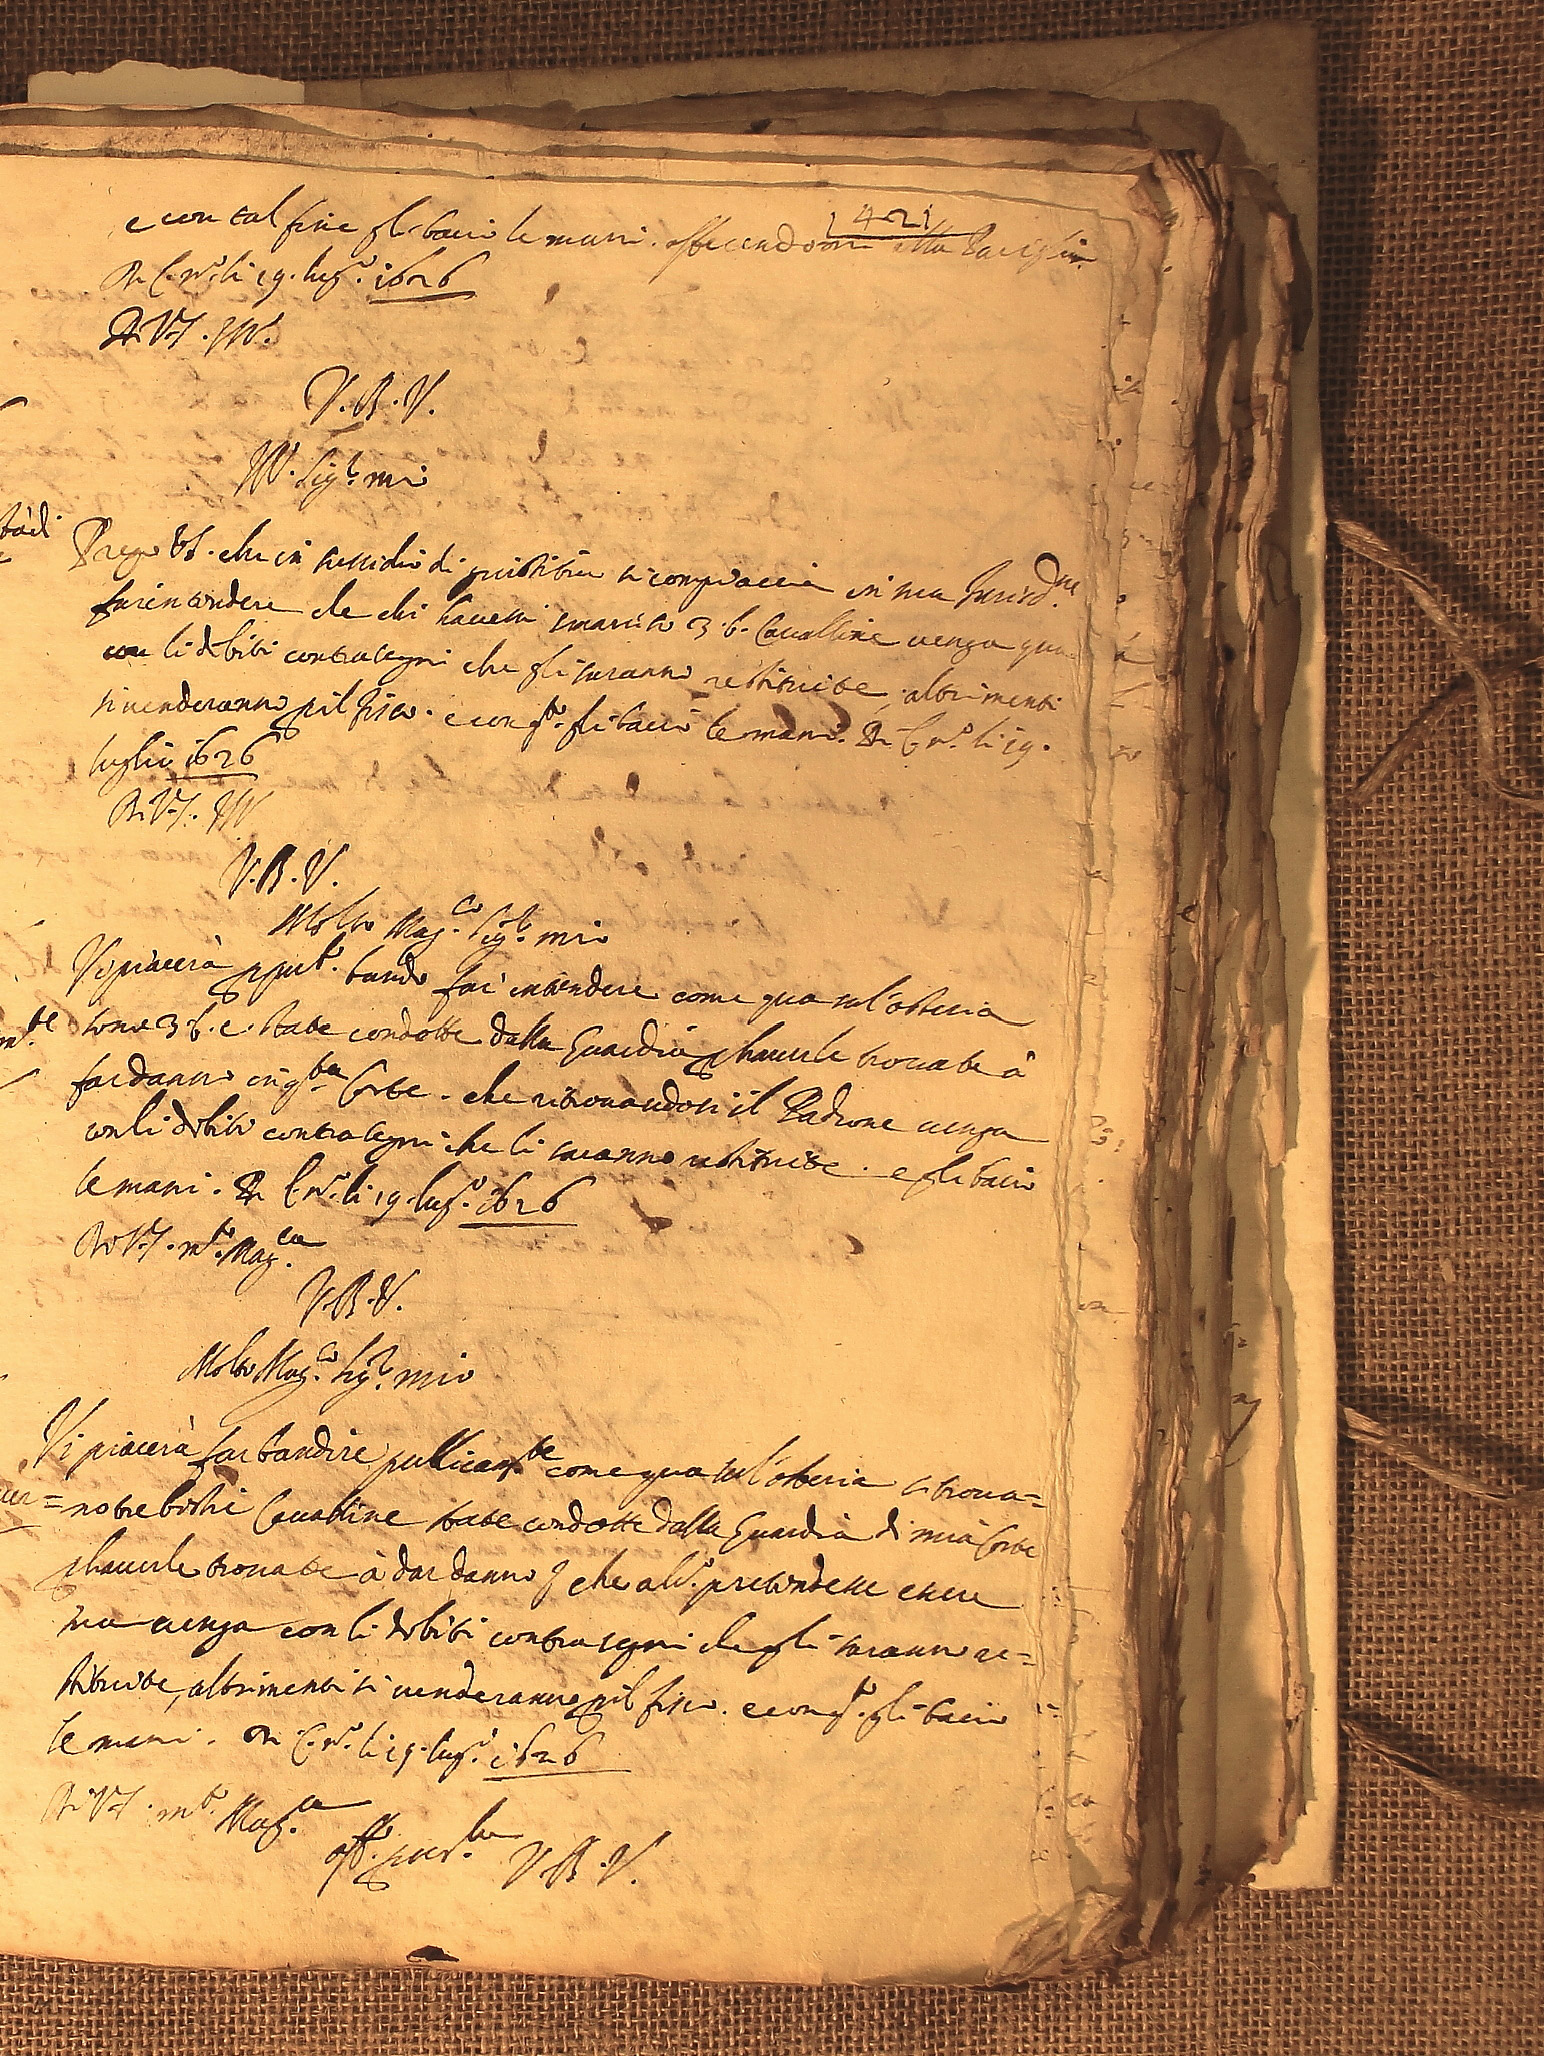 1421
e con tal fine gli bacio le mani. offerendomi alla
Di C. nº. li 19. lugº. 1626
Di V.S. Ill.
V.B.V.
Ill. Sigʳ. mio
Prego VS. che in sussidio di giustitia si compiaccia in sua Jurisdne.
far intendere che chi havessi smarrito 3. b. Cavalline venga qua
con li debiti contrasegni che gli saranno restituite, altrimenti
si venderanno pil fisco. e con qto. gli bacio le mani. Di C. nº. li 19.
luglio 1626
Di V.S. Ill
V.B.V.
Molto Mag.co Sigʳ. mio
Vi piacerà bando far intendere come qua sul'osteria
sono 3 b. c. state condotte dalla Guardia p haverle trovate à
far danno in qta Corte. che ritrovandosi il Padrone venga
con li debiti contrasegni che li saranno restituite. e gli bacio
le mani. Di C. nº. li 19. lugº. 1626
Di V.S. mto. Mag.ca
V.B.V.
Molto Mag.co Sigʳ. mio
Vi piacerà far bandire publicamte come qua sul'osteria si trova=
no tre bestie Cavalline state condotte dalla Guardia di mia Corte
p haverle trovate à dar danno che alc. pretendesse essere
sua venga con li debiti contrasegni che gli saranno re=
stituite, altrimenti si venderanno pil fisco. e con qto. gli bacio
le mani. Di C. nº. li 19. lugº. 1626
Di V.S. mto. Mag.ca
V.B.V.